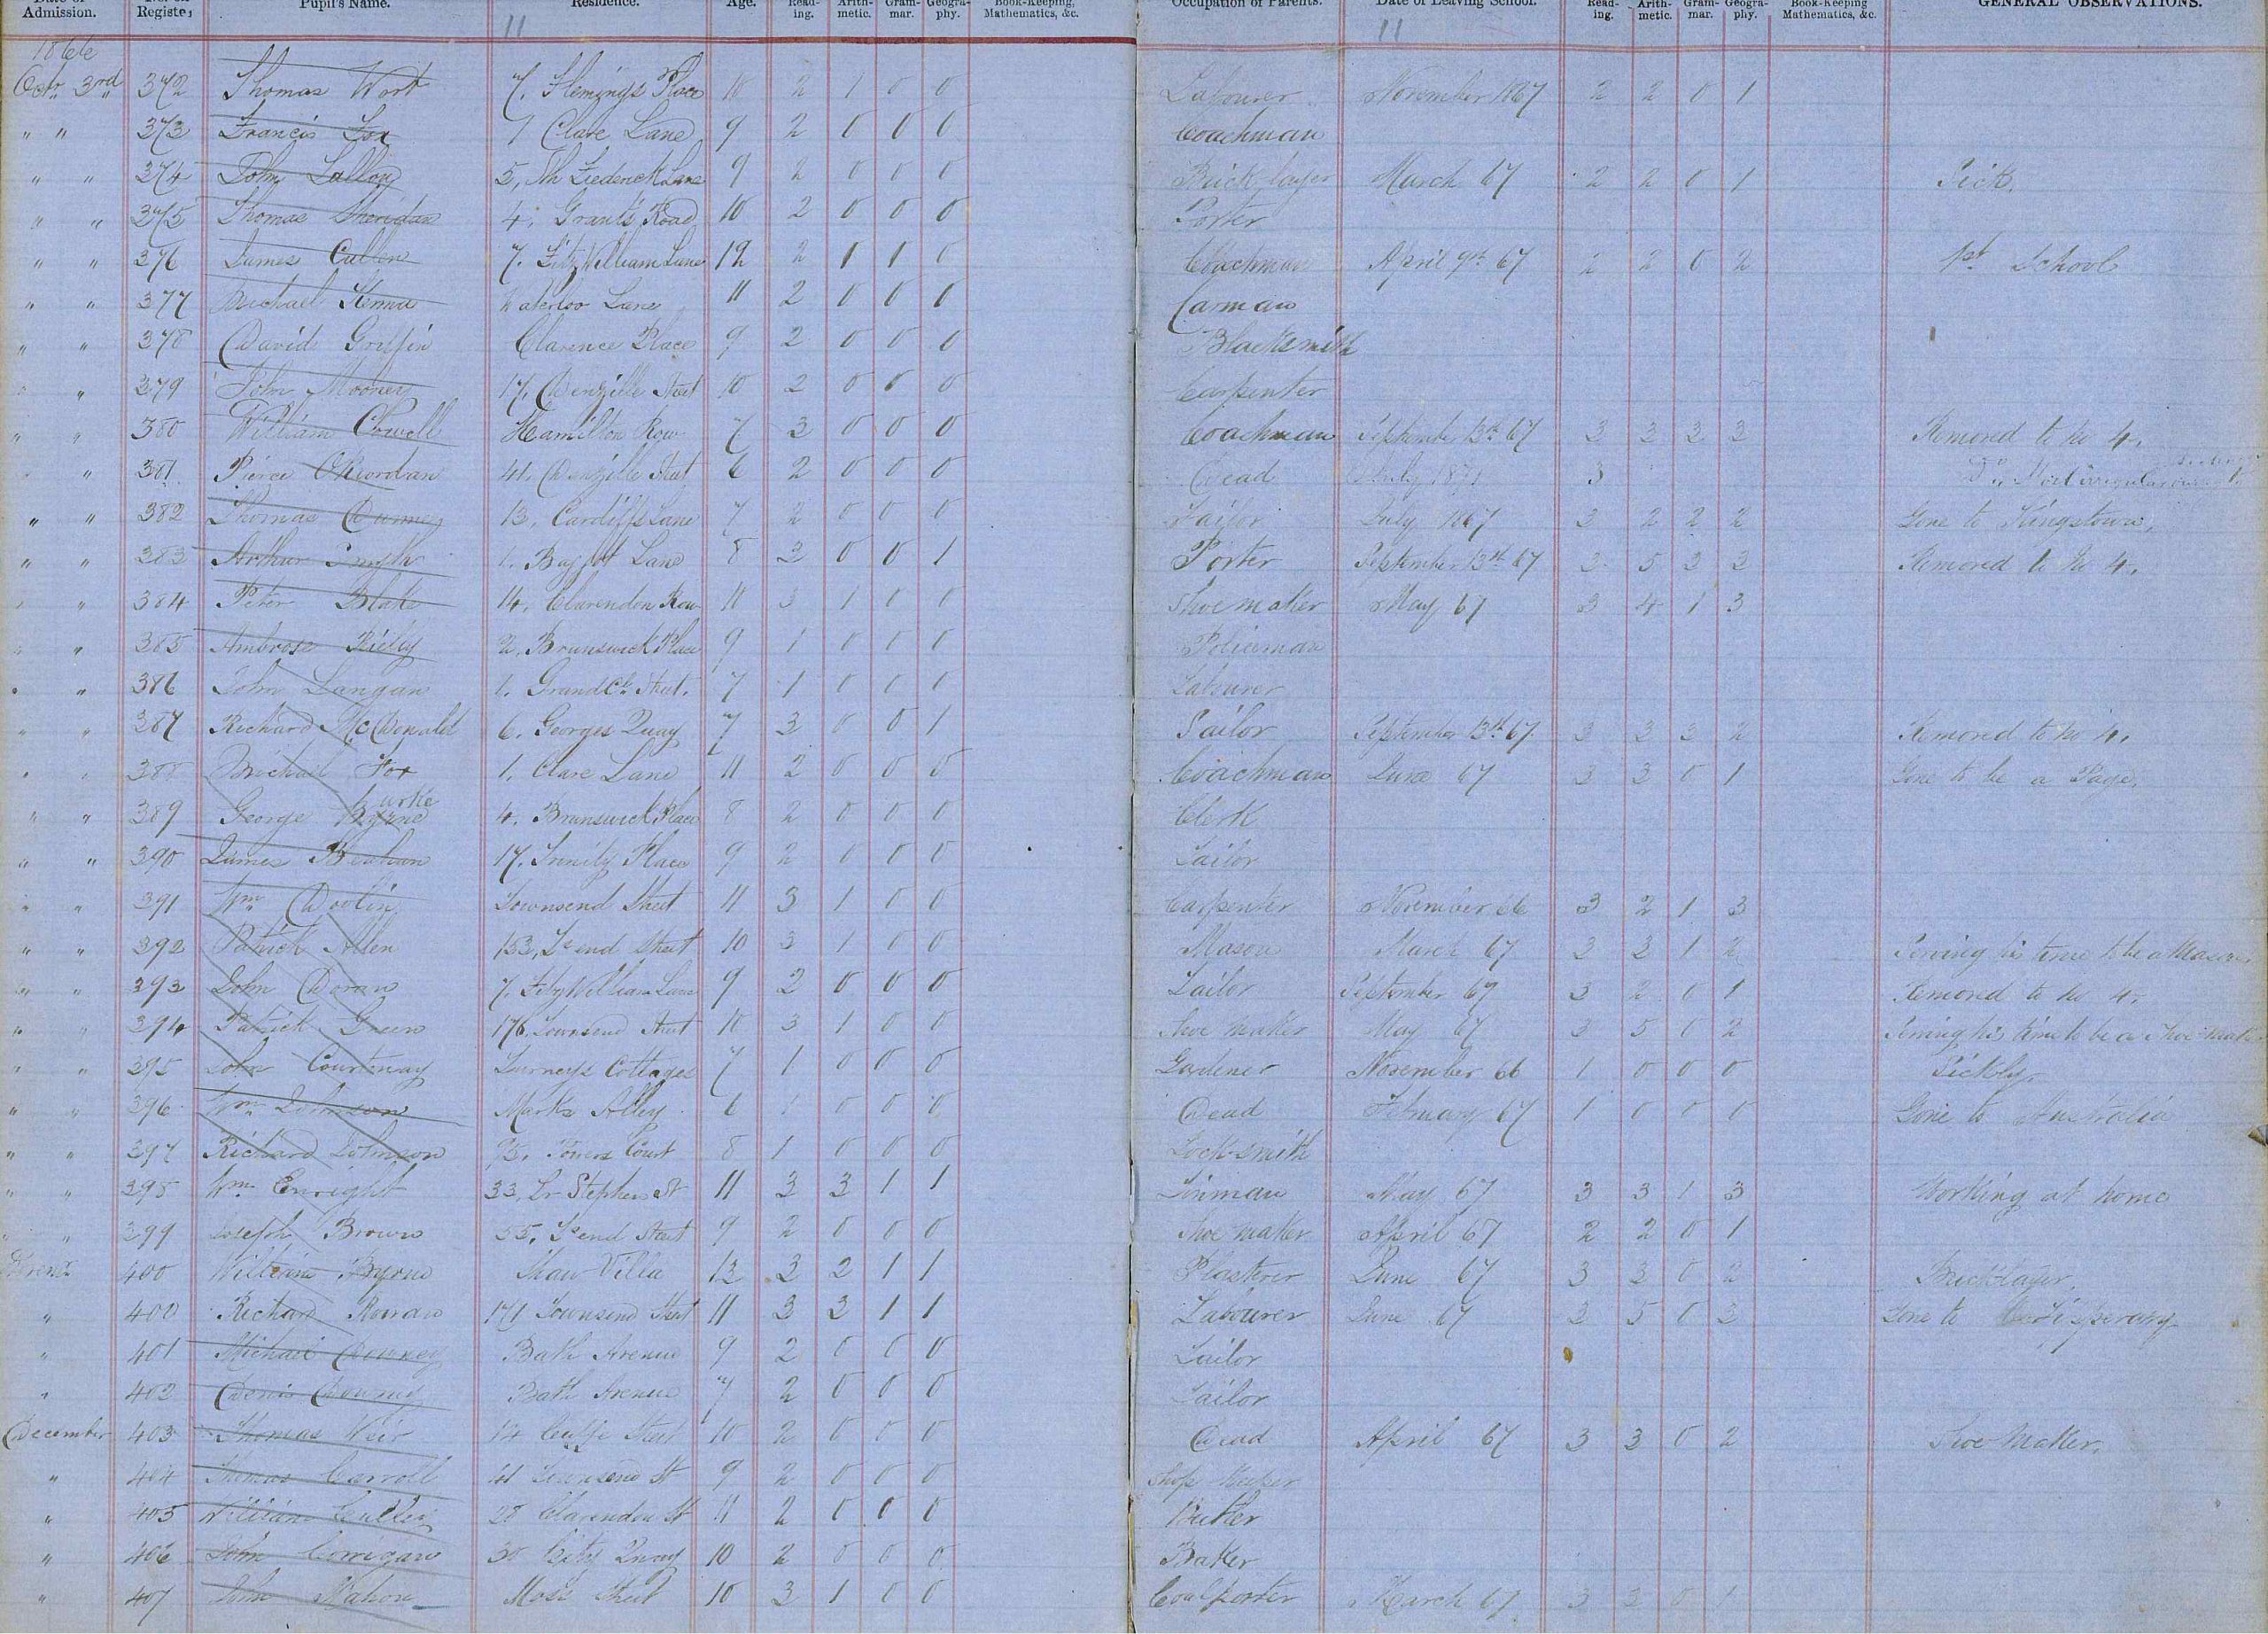 Date of Admission. No. on Register. Pupil's Name. Residence. Age. Read-ing. Arith-metic. Gram-mar. Geogra-phy. Book-Keeping, Mathematics, &c. Occupation of Parents. Date of Leaving School. Read-ing. Arith-metic. Gram-mar. Geogra-phy. Book-Keeping Mathematics, &c. GENERAL OBSERVATIONS.
11 11
1866
Octr. 3rd 372 Thomas Wort 7. Flemings Place 10 2 1 0 0 Labourer November 1867 2 2 0 1
" " 373 Francis Fox 1 Clare Lane 9 2 0 0 0 Coachman
" " 374 John Lallon 5, Sth Frederick Lane 9 2 0 0 0 Brick layer March 67 2 2 0 1 Sick.
" " 375 Thomas Sheridan 4. Grants Road 10 2 0 0 0 Porter
" " 376 James Cullen 7. Fitz William Lane 12 2 1 1 0 Coachman April 9th 67 2 2 0 2 1st School
" " 377 Michael Waterloo Lane 11 2 0 0 0 Carman
" " 378 David Griffin Clarence Place 9 2 0 0 0 Blacksmith
" " 379 John Mooney 17, Denzille Street 10 2 0 0 0 Carpenter
" " 380 William Hamilton Row 7 3 0 0 0 Coachman September 13th 67 3 3 3 3 Removed to No 4.
" " 381 Pierce O'Riordan 41, Denzille Street 6 2 0 0 0 Dead July 1871 3 Do
" " 382 Thomas Dunney 13, Cardiffs Lane 7 2 0 0 0 Sailor July 1867 3 2 2 2 Gone to Kingstown,
" " 383 Arthur Smyth 1. Baggot Lane 8 3 0 0 1 Porter September 13th 67 3 5 3 3 Removed to No 4.
" " 384 Peter Blake 14, Clarendon Row 11 3 1 0 0 Shoe maker May 67 3 4 1 3
" " 385 Ambrose Rielly 2, Brunswick Place 9 1 0 0 0 Policeman
" " 386 John Langan 1. Grand Cl. Street. 7 1 0 0 0 Labourer
" " 387 Richard McDonald 6. Georges Quay 7 3 0 0 1 Sailor September 13th 67 3 3 3 2 Removed to No 4.
" " 388 Michael Fox 1. Clare Lane 11 2 0 0 0 Coachman June 67 3 3 0 1 Gone to be a Page.
" " 389 George Burke 4. Brunswick Place 8 2 0 0 0 Clerk
" " 390 James 17. Trinity Place 9 2 0 0 0 Tailor
" " 391 Wm. Doolin Townsend Street 11 3 1 0 0 Carpenter November 66 3 2 1 3
" " 392 Patrick Allen 153, Ts end Street 10 3 1 0 0 Mason March 67 3 3 1 2 Serving his time to be a Mason.
" " 393 John Doran 7. Fitz William Lane 9 2 0 0 0 Tailor September 67 3 2 0 1 Removed to No 4.
" " 394 Patrick Green 176, Townsend Street 10 3 1 0 0 Shoe maker May 67 3 5 0 2 Serving his time to be a Shoe maker
" " 395 John Courtenay Turneys Cottages 7 1 0 0 0 Gardener November 66 1 0 0 0 Sickly.
" " 396 Wm. Johnson Marks Alley 6 1 0 0 0 Dead February 67 1 0 0 0 Gone to Australia
" " 397 Richard Johnson Powers Court 8 1 0 0 0 Locksmith
" " 398 Wm. Enright 33, Lr Stephen St 11 3 3 1 1 Tinman May 67 3 3 1 3 Working at home
" " 399 Joseph Brown 55, Ts end Street 9 2 0 0 0 Shoe maker April 67 2 2 0 1
400 William Byrne Shaw Villa 13 3 2 1 1 Plasterer June 67 3 3 0 2 Bricklayer.
" 400 Richard Ronan 171 Townsend Street 11 3 3 1 1 Labourer June 67 3 5 0 3 Gone to Co. Tipperary
" 401 Michael Downey Bath Avenue 9 2 0 0 0 Tailor
" 402 Denis Downey Bath Avenue 7 2 0 0 0 Tailor
December 403 Thomas Weir 14 Cuffe Street 10 2 0 0 0 Dead April 67 3 3 0 2 Shoe Maker.
" 404 Thomas Carroll 41 Townsend St 9 2 0 0 0 Shop Keeper
" 405 William Cullen 28 Clarendon St 11 2 0 0 0 Butler
" 406 John Corrigan 30 City Quay 10 2 0 0 0 Baker
" 407 John Mahon Moss Street 10 3 1 0 0 Coal porter March 67 3 3 0 1